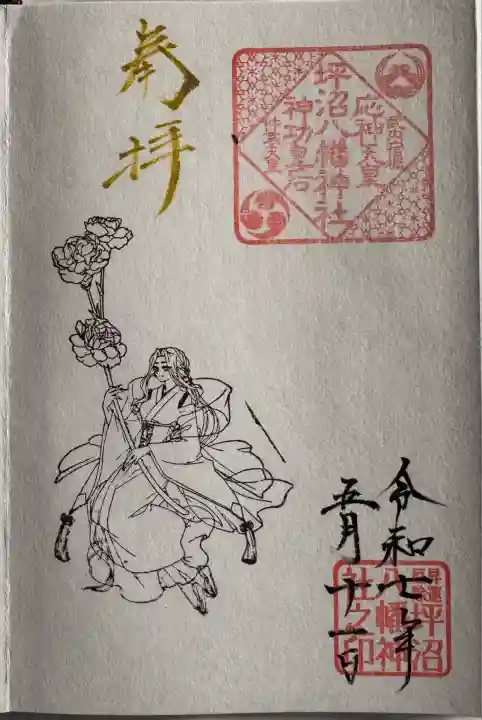 奉拝
坪沼八幡神社
応神天皇
神功皇后
仲哀天皇
令和七年
五月十一日
坪沼
八幡神
社之印